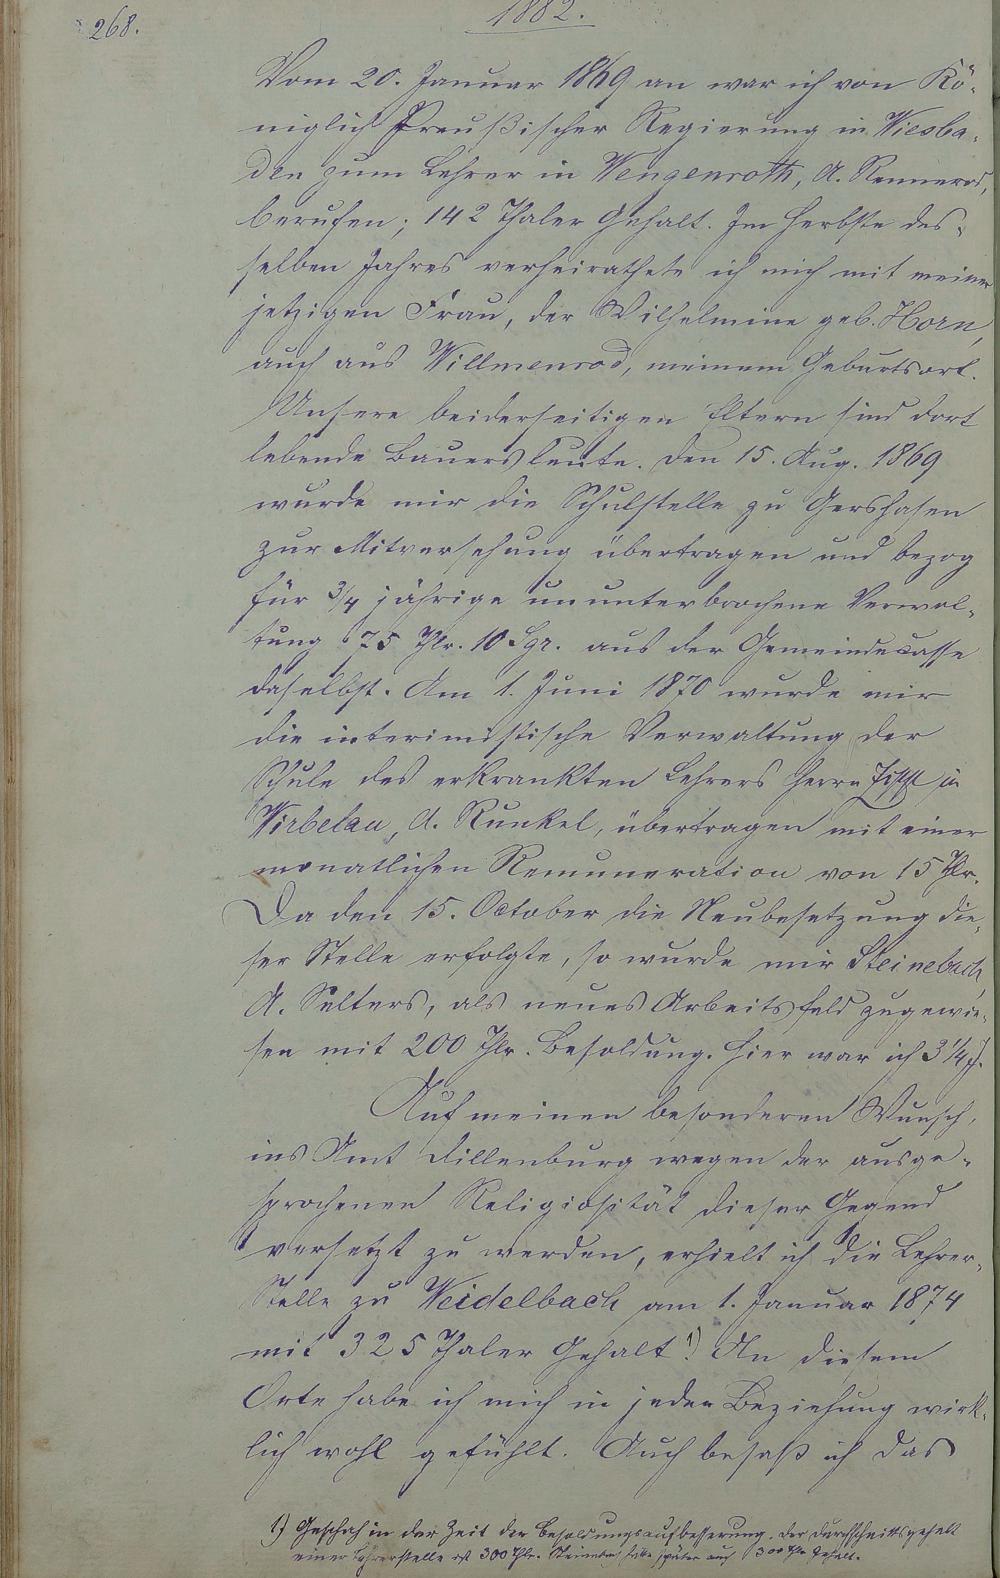 268.
1882.
Vom 20. Januar 1869 an war ich von Kö-
niglich Preußischer Regierung in Wiesba-
den zum Lehrer in Wengenroth, A. Rennerod,
berufen; 142 Thaler Gehalt. Im Herbste des-
selben Jahres verheirathete ich mich mit meiner
jetzigen Frau, der Wilhelmine geb. Horn,
auch aus Willmenrod, meinem Geburtsort.
Unsere beiderseitigen Eltern sind dort
lebende Bauersleute. Den 15. Aug. 1869
wurde mir die Schulstelle zu Gershasen
zur Mitversehung übertragen und bezog
für 3/4 jährige ununterbrochene Verwal-
tung 75 Thlr. 10 Sgr. aus der Gemeindecasse
daselbst. Am 1. Juni 1870 wurde mir
die interimistische Verwaltung der
Schule des erkrankten Lehrers Herrn in
Wirbelau, A. Runkel, übertragen mit einer
monatlichen Remuneration von 15 Thlr.
Da den 15. October die Neubesetzung die-
ser Stelle erfolgte, so wurde mir Steinebach,
A. Selters, als neues Arbeitsfeld zugewie-
sen mit 200 Thlr. Besoldung. Hier war ich 3 1/4 J.
Auf meinen besonderen Wunsch,
ins Amt Dillenburg wegen der ausge-
sprochenen Religiosität dieser Gegend
versetzt zu werden, erhielt ich die Lehrer-
Stelle zu Weidelbach am 1. Januar 1874
mit 325 Thaler Gehalt 1). An diesem
Orte habe ich mich in jeder Beziehung wirk-
lich wohl gefühlt. Auch besaß ich das
1) Geschah in der Zeit der Besoldungsaufbesserung. Der Durchschnittsgehalt
einer Lehrerstelle ist 300 Thlr. Steinebach hatte später auch 300 Thlr. Gehalt.